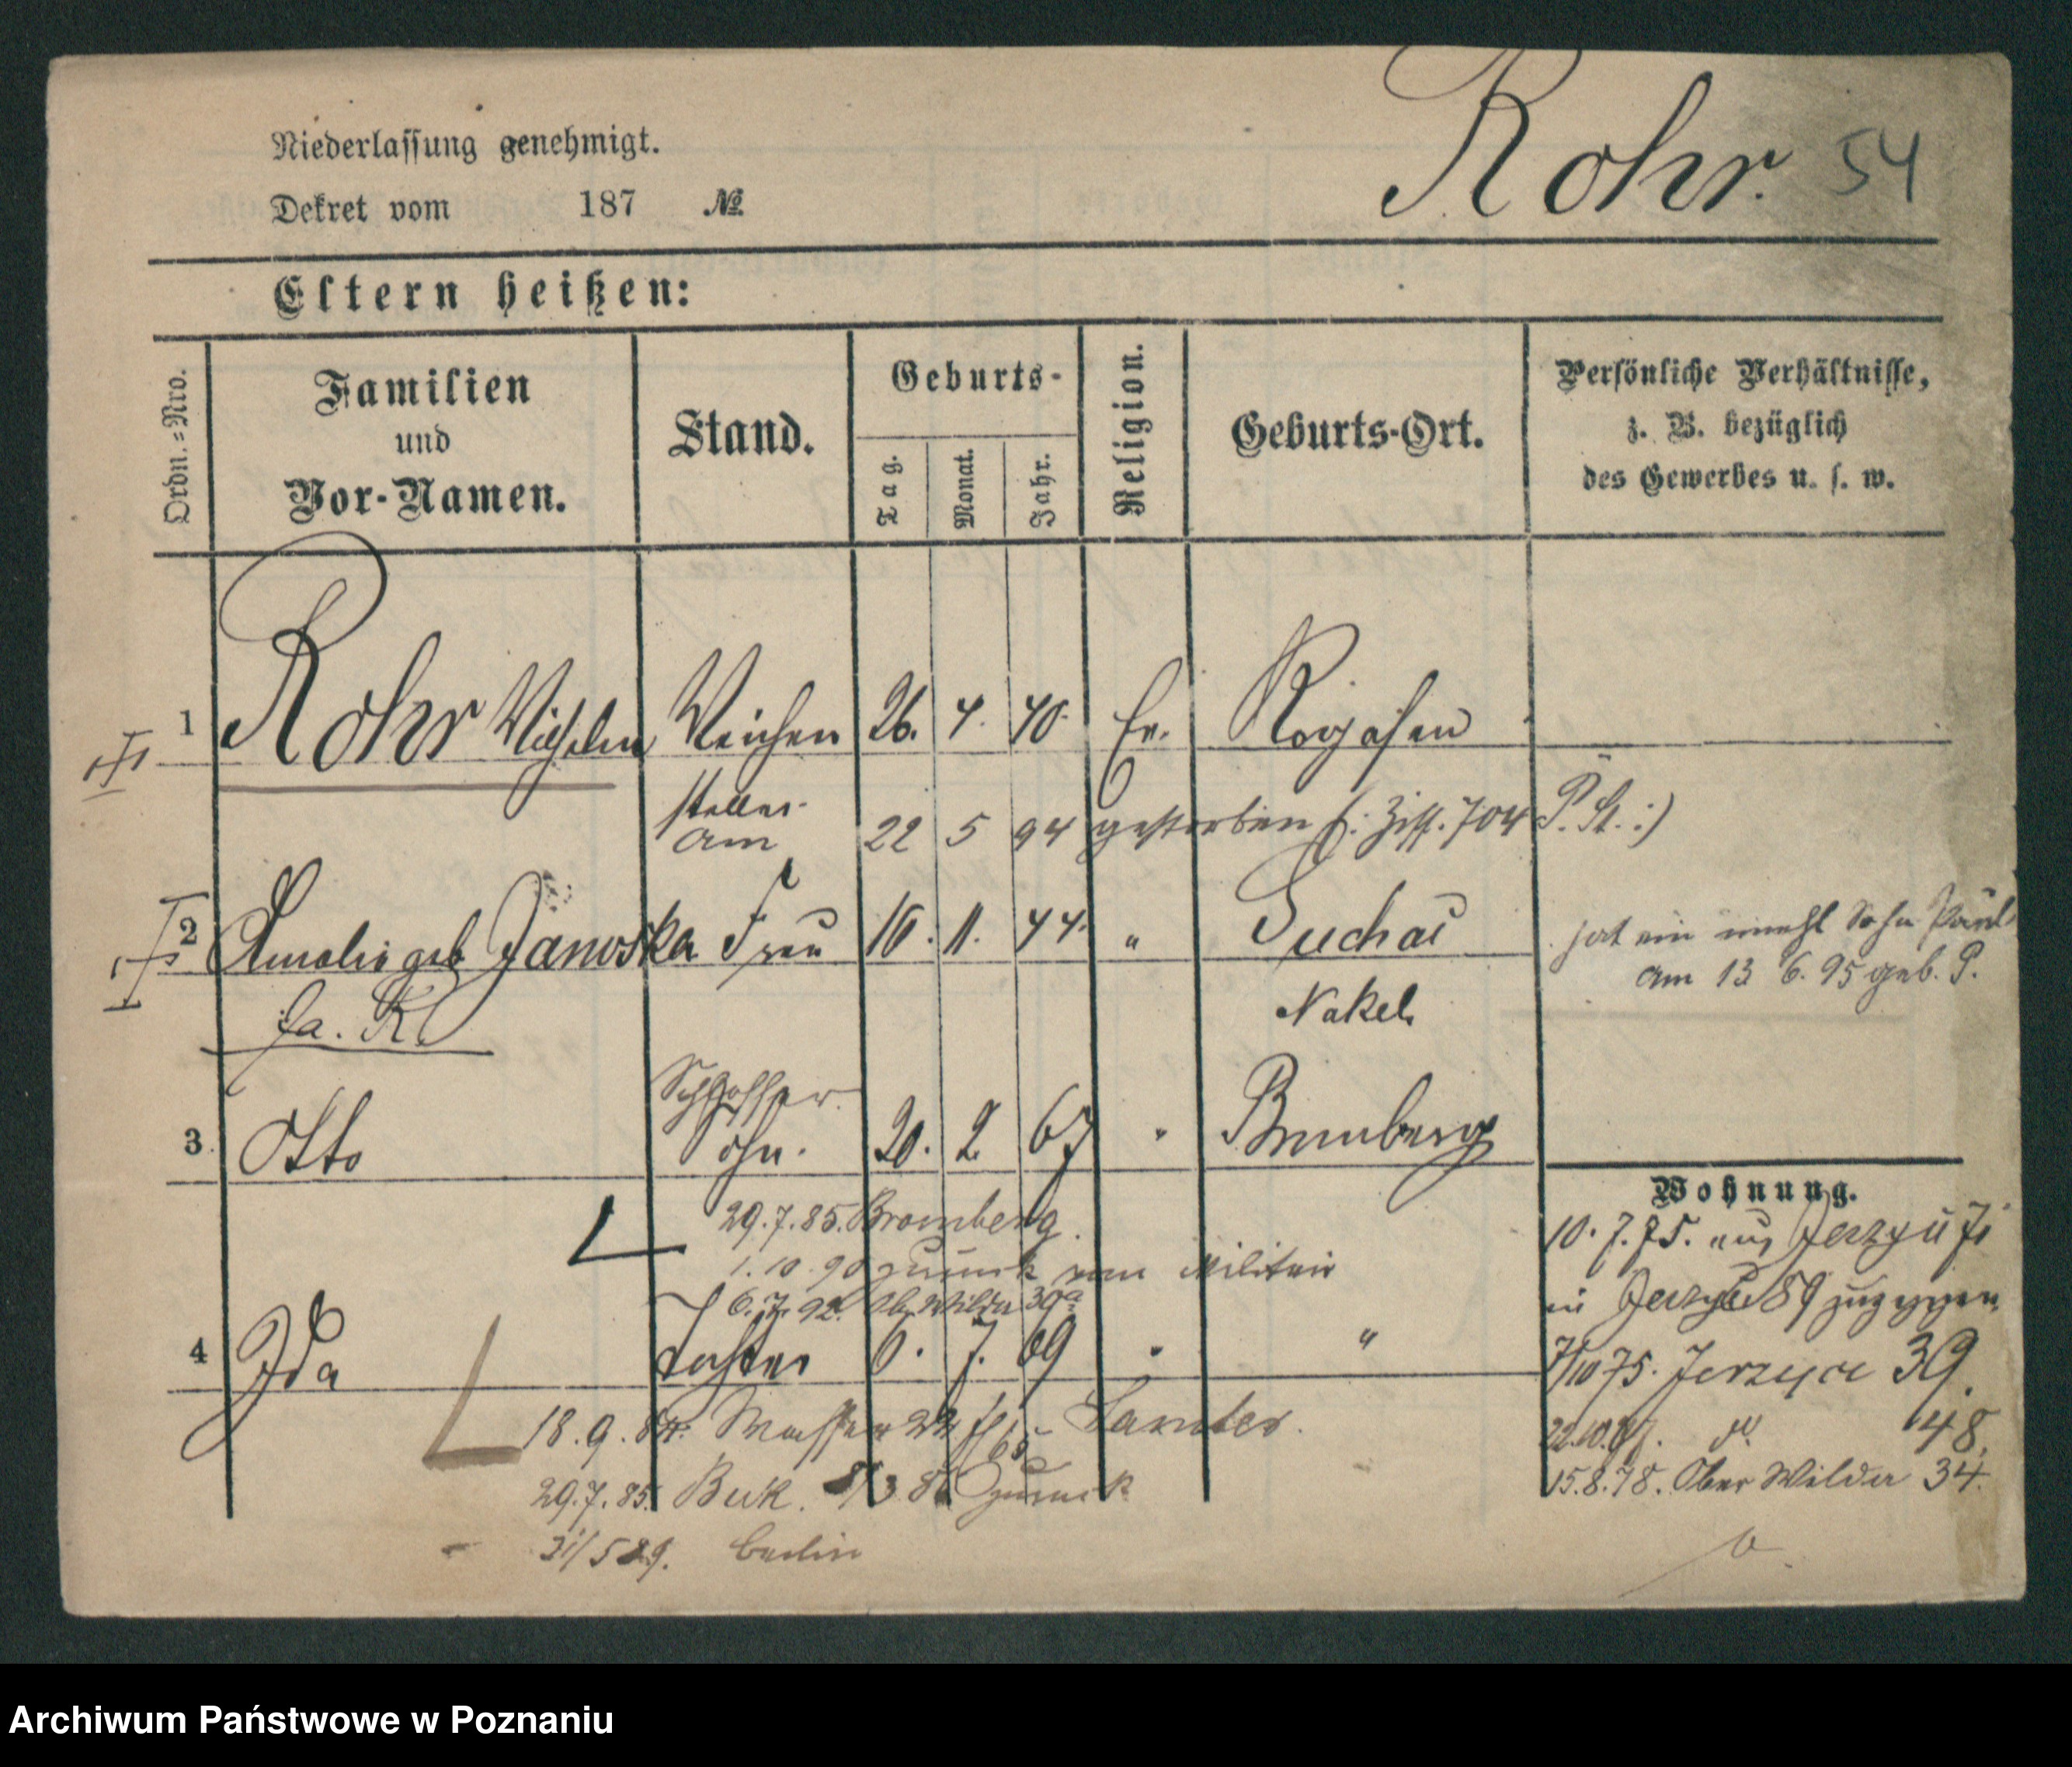 Rohr. 54
Niederlassung genehmigt.
Dekret vom 187 №
Eltern heißen:
Ordn.=Nro.
Familien
und
Vor-Namen.
Stand.
Geburts-
Tag.
Monat.
Jahr.
Religion.
Geburts-Ort.
Persönliche Verhältnisse,
z. B. bezüglich
des Gewerbes u. s. w.
1 Rohr Wilhelm Weichen 26. 4. 40. Ev. Rogasen
steller
am 22 5 94 gestorben (: Ziff. 704 P. St. :)
2 Amalie geb Janoska Frau 16. 11. 44. " Suchau
hat ein unehl Sohn Paul
am 13 6. 95 geb. P.
Nakel
Schlosser
3. Otto Sohn. 20. 2. 67 " Bromberg
29.7.85. Bromberg
1.10.90 zurück vom Militair
6.7.92. Ob. Wilda 39a
4 Ida Tochter 6. 7. 69 " "
18.9.84. Samter.
29.7.85. Buk. zurück
31/5 89. Berlin
Wohnung.
10.7.75. aus Jerzyce 71
in Jerzyce 89 zugezogen
7/10 75. Jerzyce 39.
do 48.
15.8.78. Ober Wilda 34.
Archiwum Państwowe w Poznaniu